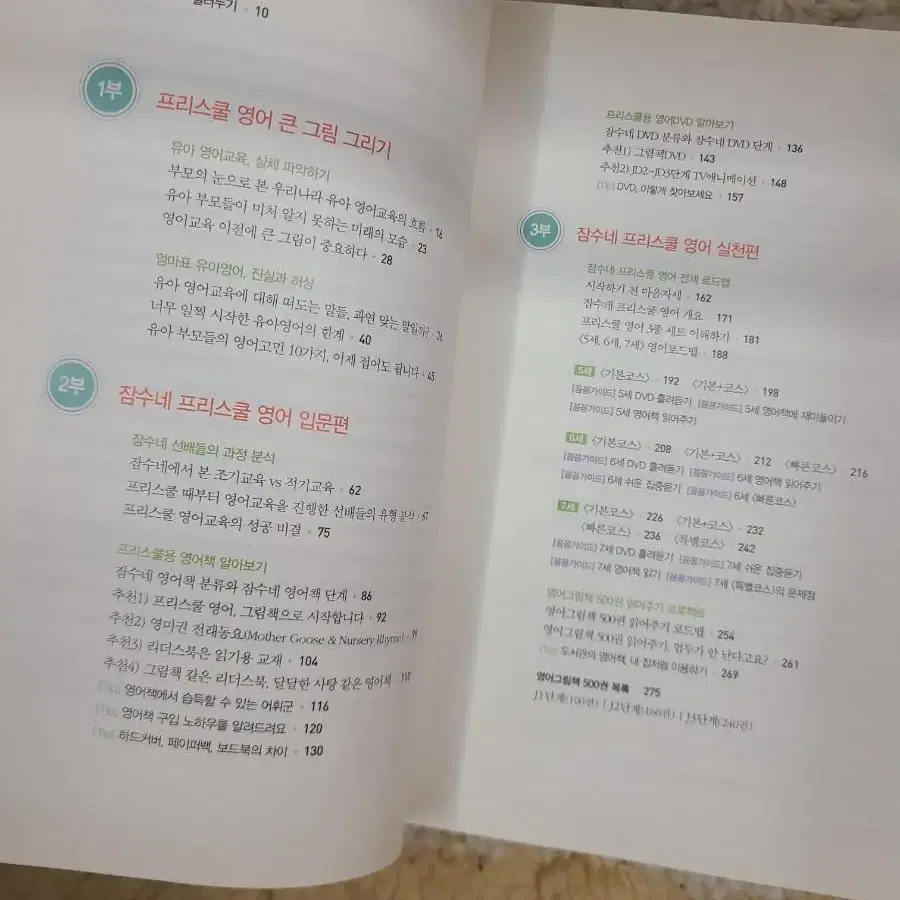 일러두기 · 10
1부
프리스쿨 영어 큰 그림 그리기
유아 영어교육, 실체 파악하기
부모의 눈으로 본 우리나라 유아 영어교육의 흐름 · 16
유아 부모들이 미처 알지 못하는 미래의 모습 · 23
영어교육 이전에 큰 그림이 중요하다 · 28
엄마표 유아영어, 진실과 허상
유아 영어교육에 대해 떠도는 말들, 과연 맞는 말일까? · 36
너무 일찍 시작한 유아영어의 한계 · 40
유아 부모들의 영어고민 10가지, 이제 접어도 됩니다 · 45
2부
잠수네 프리스쿨 영어 입문편
잠수네 선배들의 과정 분석
잠수네에서 본 조기교육 vs 적기교육 · 62
프리스쿨 때부터 영어교육을 진행한 선배들의 유형 분석 · 67
프리스쿨 영어교육의 성공 비결 · 75
프리스쿨용 영어책 알아보기
잠수네 영어책 분류와 잠수네 영어책 단계 · 86
추천1) 프리스쿨 영어, 그림책으로 시작합니다 · 92
추천2) 영미권 전래동요(Mother Goose & Nursery Rhyme) ·
추천3) 리더스북은 읽기용 교재 · 104
추천4) 그림책 같은 리더스북, 달달한 사탕 같은 영어책 · 110
[Tip] 영어책에서 습득할 수 있는 어휘군 · 116
[Tip] 영어책 구입 노하우를 알려드려요 · 120
[Tip] 하드커버, 페이퍼백, 보드북의 차이 · 130
프리스쿨용 영어DVD 알아보기
잠수네 DVD 분류와 잠수네 DVD 단계 · 136
추천1) 그림책DVD · 143
추천2) JD2~JD3단계 TV애니메이션 · 148
[Tip] DVD, 이렇게 찾아보세요 · 157
3부
잠수네 프리스쿨 영어 실천편
잠수네 프리스쿨 영어 전체 로드맵
시작하기 전 마음자세 · 162
잠수네 프리스쿨 영어 개요 · 171
프리스쿨 영어 3종 세트 이해하기 · 181
〈5세, 6세, 7세〉 영어로드맵 · 188
5세 〈기본코스〉 · 192 〈기본+코스〉 · 198
[꼼꼼가이드] 5세 DVD 흘려듣기 [꼼꼼가이드] 5세 영어책에 재미들이기
[꼼꼼가이드] 5세 영어책 읽어주기
6세 〈기본코스〉 · 208 〈기본+코스〉 · 212 〈빠른코스〉 · 216
[꼼꼼가이드] 6세 DVD 흘려듣기 [꼼꼼가이드] 6세 영어책 읽어주기
[꼼꼼가이드] 6세 쉬운 집중듣기 [꼼꼼가이드] 6세 〈빠른코스〉
7세 〈기본코스〉 · 226 〈기본+코스〉 · 232
〈빠른코스〉 · 236 〈특별코스〉 · 242
[꼼꼼가이드] 7세 DVD 흘려듣기 [꼼꼼가이드] 7세 쉬운 집중듣기
[꼼꼼가이드] 7세 영어책 읽기 [꼼꼼가이드] 7세 〈특별코스〉의 문제점
영어그림책 500권 읽어주기 프로젝트
영어그림책 500권 읽어주기 로드맵 · 254
영어그림책 500권 읽어주기, 엄두가 안 난다고요? · 261
[Tip] 도서관의 영어책, 내 집처럼 이용하기 · 269
영어그림책 500권 목록 · 275
J1단계(100권) | J2단계(160권) | J3단계(240권)